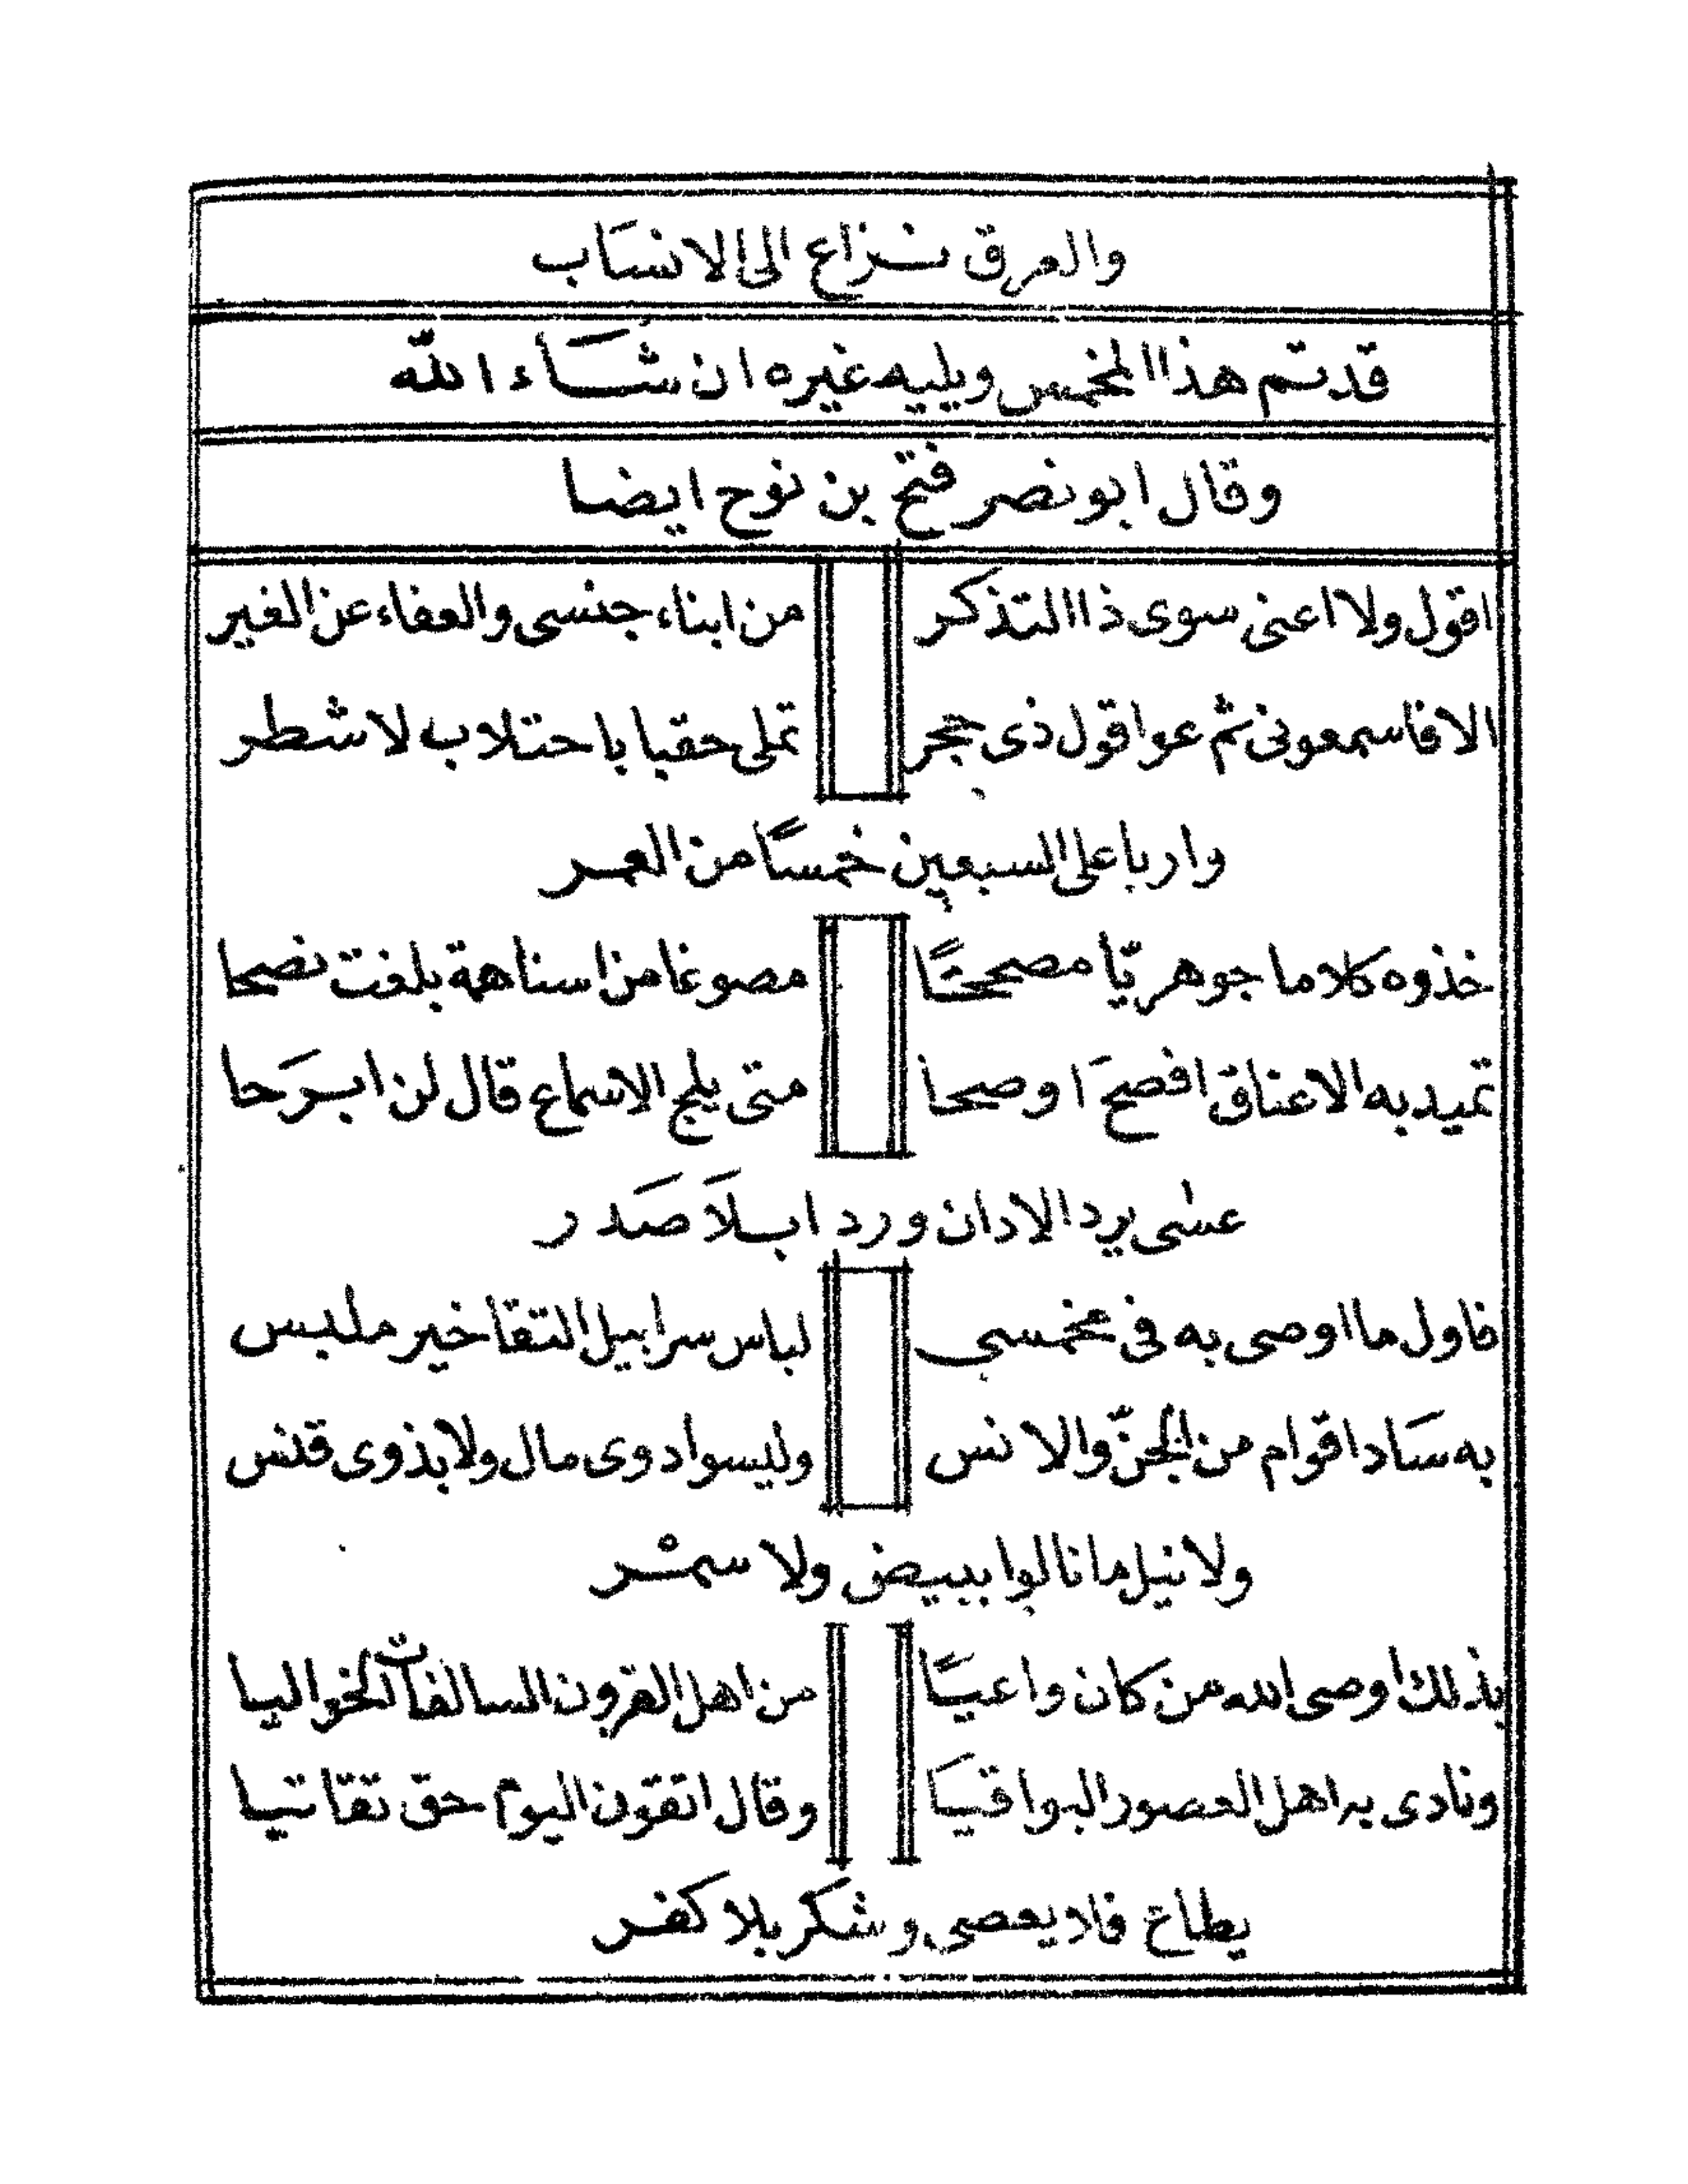 والعرق نزاع الى الانسَاب
قد تم هذا المخمس ويليه غيره ان شَاء الله
وقال ابو نصر فتح بن نوح ايضا
اقول ولا اعنى سوى ذا التذكر من ابناء جنسى والعفاء عن الغير
الا فاسمعونى ثم عوا قول ذى حجر تملى حقبا باحتلاب لا شطر
واربا على السبعين خمسًا من العمر
خذوه كلاما جوهريّا مصححًا مصوغا من اسنا همة بلغت نصحا
تميد به الاعناق افصحَ اوصحا متى يلج الاسماع قال لن ابرَحا
عسى يرد الاذان وردا بلَا صَدر
فاول ما اوصى به فى مخمسي لباس سرابيل التقا خير ملبس
به سَاد اقوام من الجنّ والانس وليسوا ذوى مال ولا بذوى قنس
ولا نيل ما نالوا ببيض ولا سمْر
بذلك اوصى الله من كان واعيًا من اهل القرون السالفات الخواليا
ونادى به اهل العصور البواقيَا وقال اتقون اليوم حق تقاتيا
يطاع فلا يعصى وشكر بلا كفر